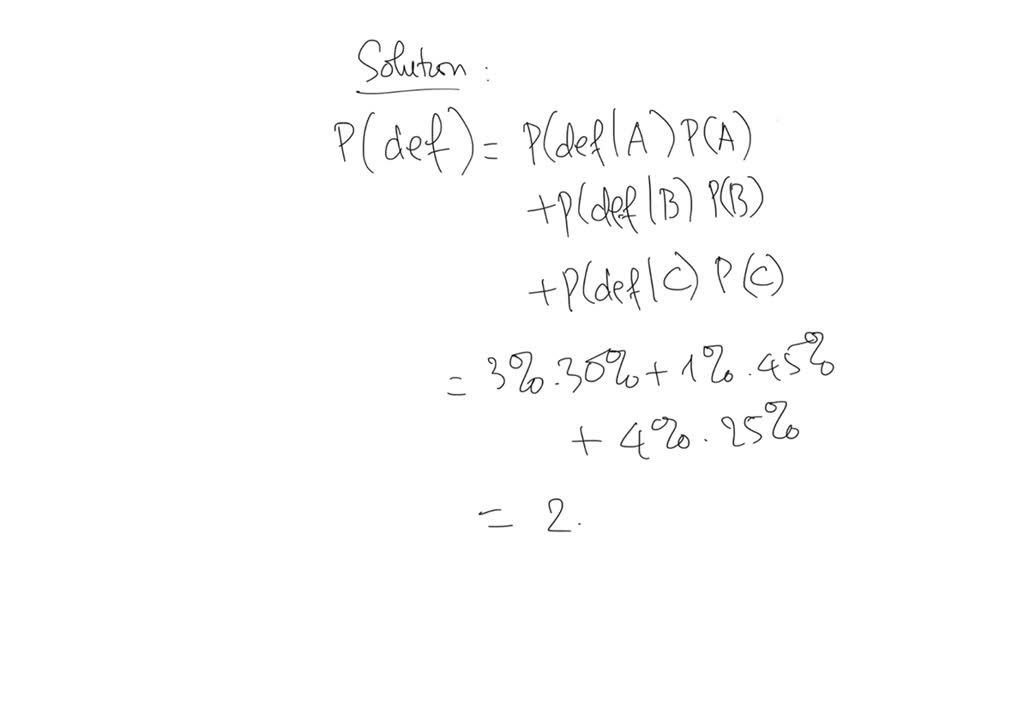 Solution :
P(def) = P(def|A) P(A)
+ P(def|B) P(B)
+ P(def|C) P(C)
= 3% . 30% + 1% . 45%
+ 4% . 25%
= 2.